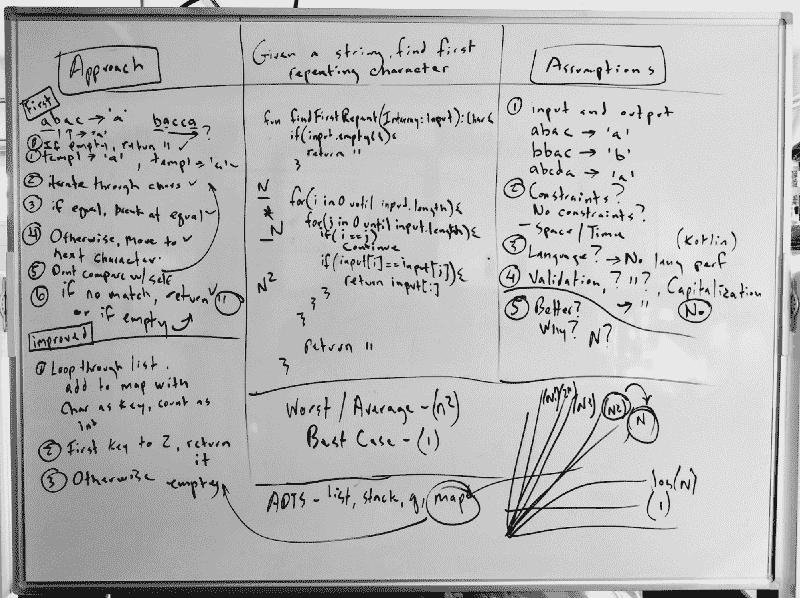 Approach
First
abac → 'a'
bacca
?
→ 'a'
⓪ If empty, return '' ✓
① temp1 → 'a', temp2 → 'a' ✓
② iterate through chars ✓
③ if equal, break at equal ✓
④ Otherwise, move to ✓
next character.
⑤ Dont compare w/ self
⑥ if no match, return ''
or if empty
improved
① Loop through list.
add to map with
char as key, count as
int
② First key to 2, return
it
③ Otherwise empty
Given a string, find first
repeating character
if(input.empty()){
return ''
}
N
*
N
N²
for(i in 0 until input.length){
for(j in 0 until input.length){
if(i==j)
continue
if(input[i]==input[j]){
return input[i]
}
}
}
return ''
}
Worst / Average - (n²)
Best Case - (1)
ADTS - list, stack, q, map
Assumptions
① input and output
abac → 'a'
bbac → 'b'
abcda → 'a'
② Constraints?
No constraints?
- Space/Time
③ Language? → No lang pref
(Kotlin)
④ Validation, ? ''?, Capitalization
→ ''
No
⑤ Better?
Why? N?
(N!)
(N³)
(N²)
N
log(N)
(1)